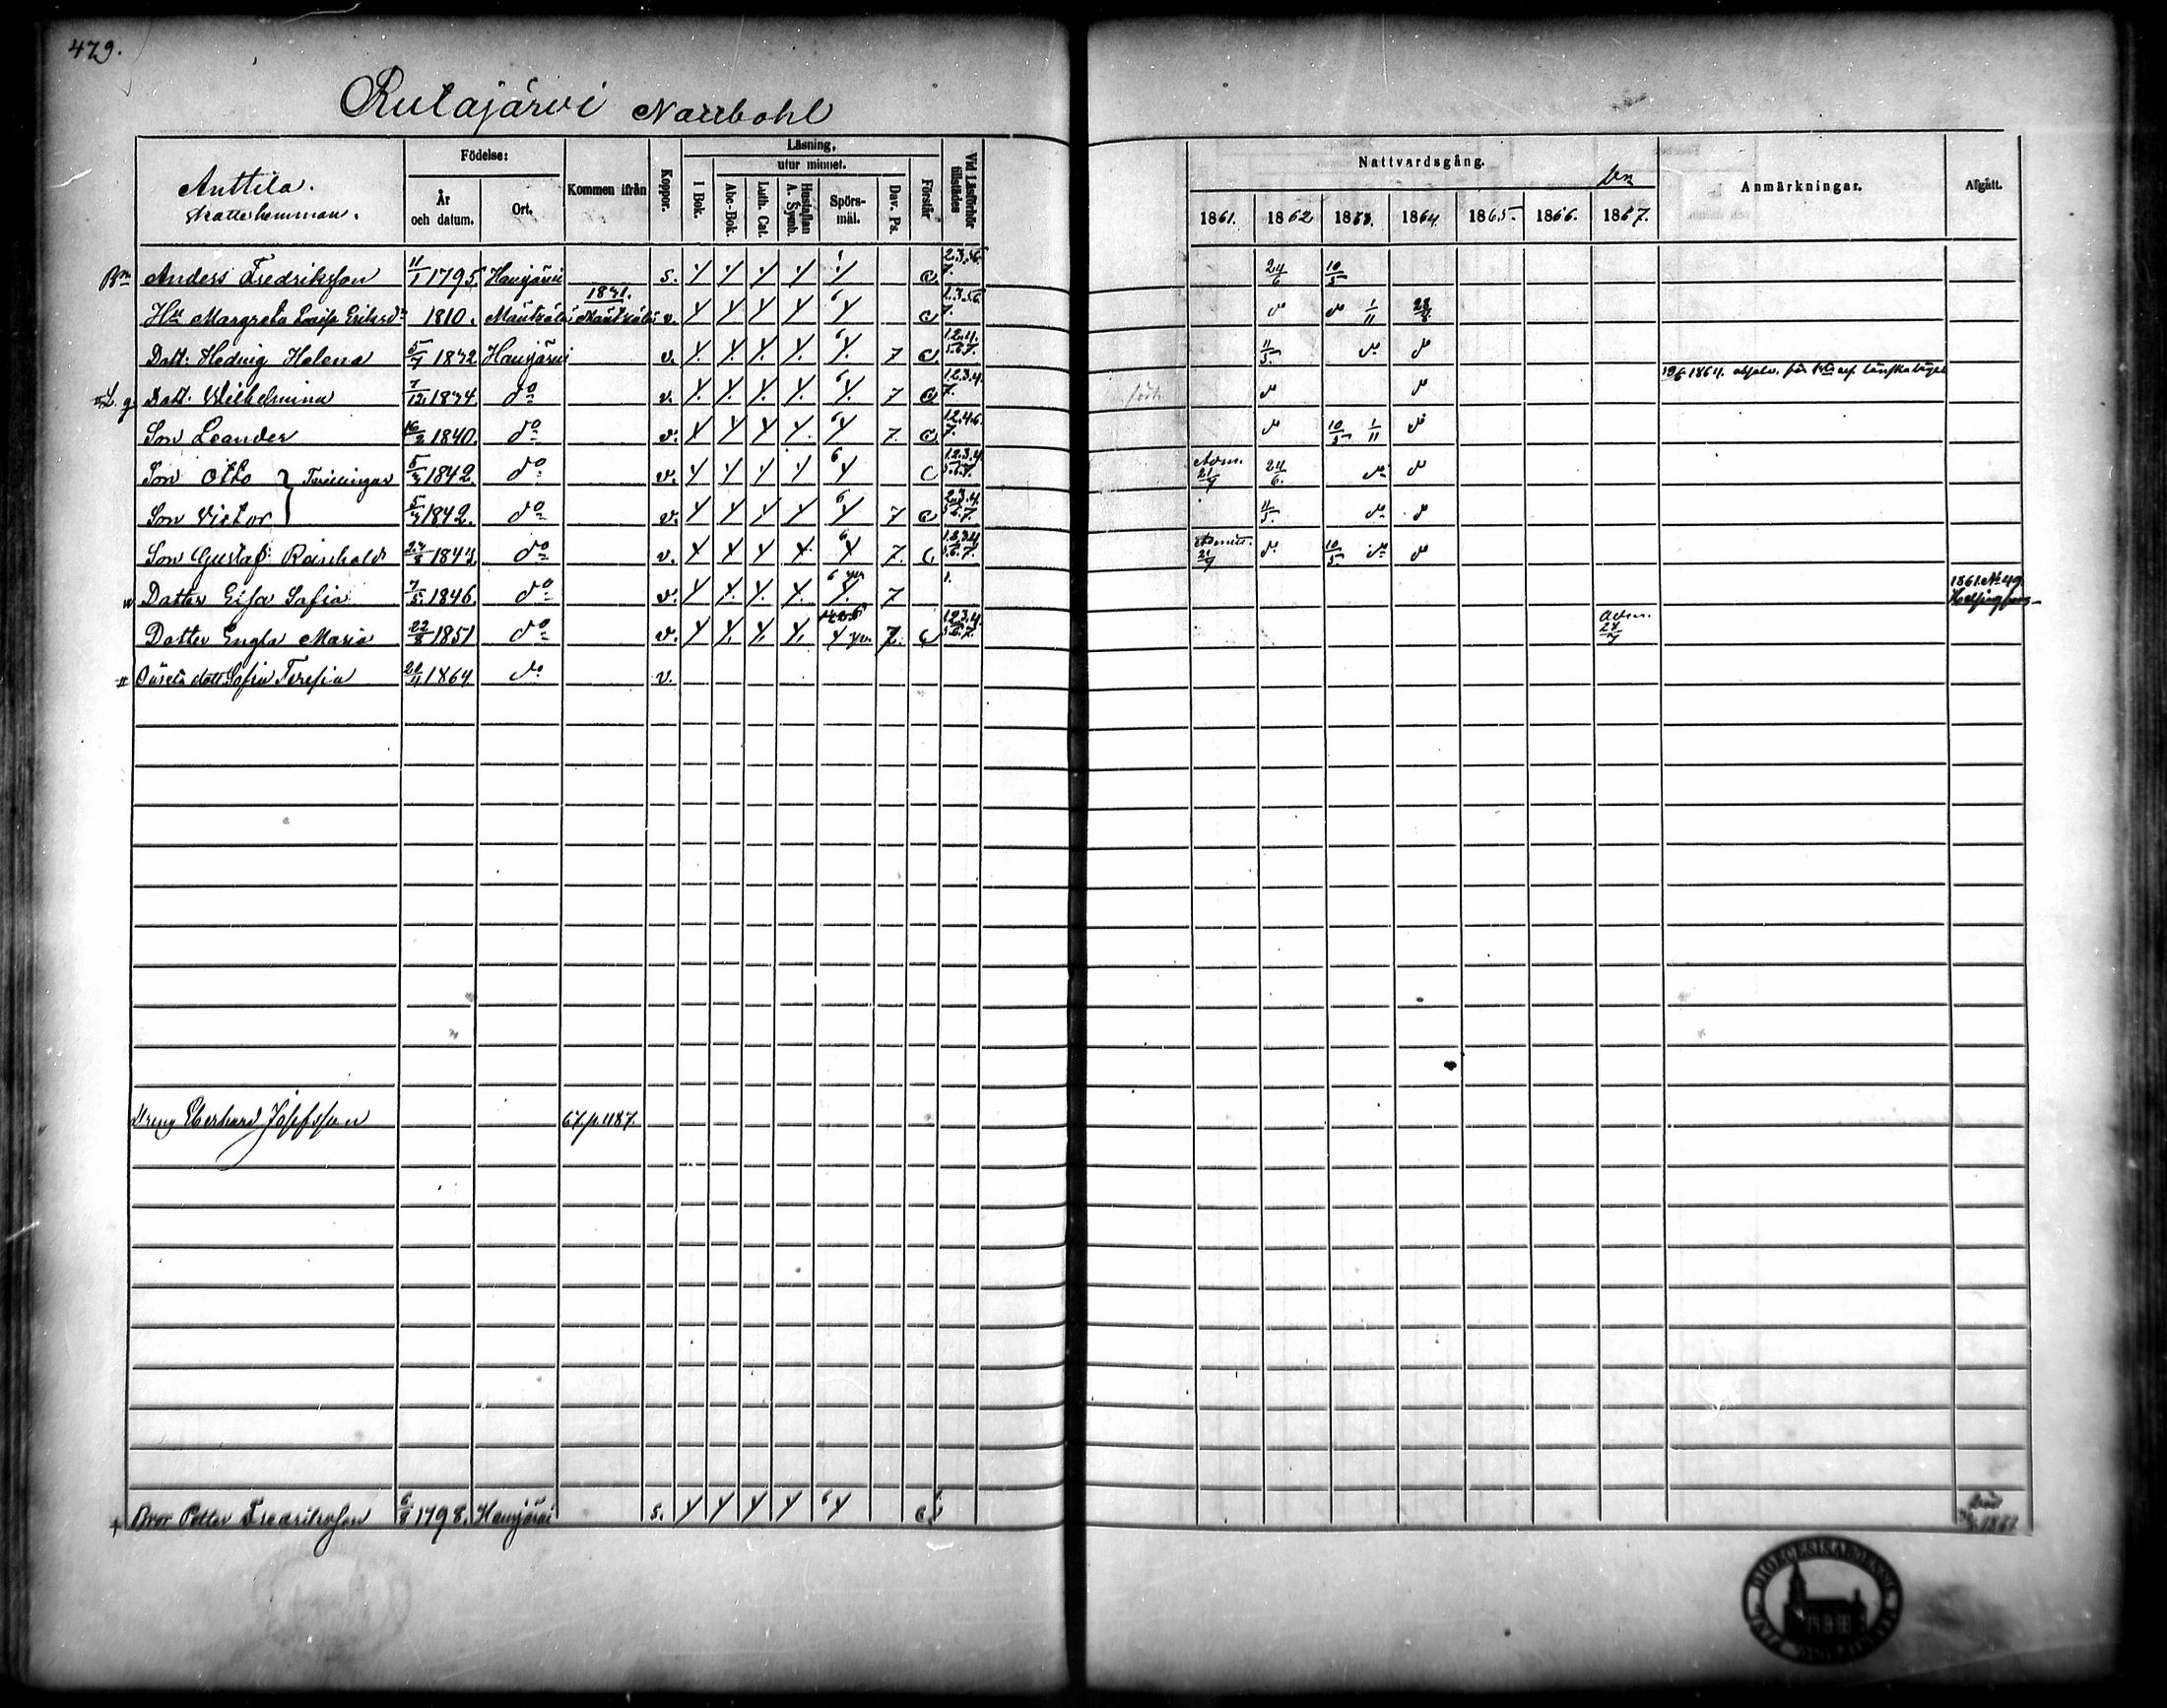 479.
Rutajärvi Narrbohl
Anttila.
Skattehemman.
Födelse:
År och datum.
Ort.
Kommen ifrån
Koppor.
Läsning,
utur minnet.
I Bok.
Abc-Bok.
Luth. Cat.
Hustaflan A. Symb.
Spörsmål.
Dav. Ps.
Förstår
Vid Läsförhör tillstädes
Nattvardsgång.
1861. 1862 1863. 1864. 1865. 1866. 1867.
Anmärkningar.
Afgått.
Bn Anders Fredriksson 11/1 1795. Hausjärvi s. c. 24/6 10/5
Hu Margreta Lovisa Eriksdr 1810. Mäntsälä 1831. Mäntsälä v. c do do 1/11 28/8
Dott: Hedvig Helena 5/7 1832 Hausjärvi v. 7 c. 1.2.4. 5.6.7. 11/5. do do
Dott. Wilhelmina 7/12 1834. do v. 7 c 1.2.3.4. 7. do do 19/6 1864. absolv. för
Son Leander 16/2 1840. do v. 7. c. 1.2.4.6. 7. do 10/5 1/11 do
Son Otto } Tvillingar 5/4 1842. do v. c 1.2.3.4. 5.6.7. Adm. 21/9 24/6. do do
Son Victor 5/4 1842. do v. 7 c 2.3.4. 5.6.7. 11/5. do do
Son Gustaf Reinhold 27/8 1843. do v. 7. c. 1.2.3.4. 5.6.7. Admitt. 21/9 do 10/5 do do
Dotter Eisa Sofia 7/5. 1846. do v. 7 1. 1861. No 49. Helsingfors
Dotter Engla Maria 22/8 1851 do v. 7. c 1.2.3.4. 5.6.7. Adm. 27/7
Oäkta dott Sofia Teresia 20/4 1864 do v.
Dreng Eberhard Josefsson 67. p. 1187.
+ Bror Petter Fredriksson 6/8 1798. Hausjärvi s. c Död 1862
DIOECESIS ABOENSIS